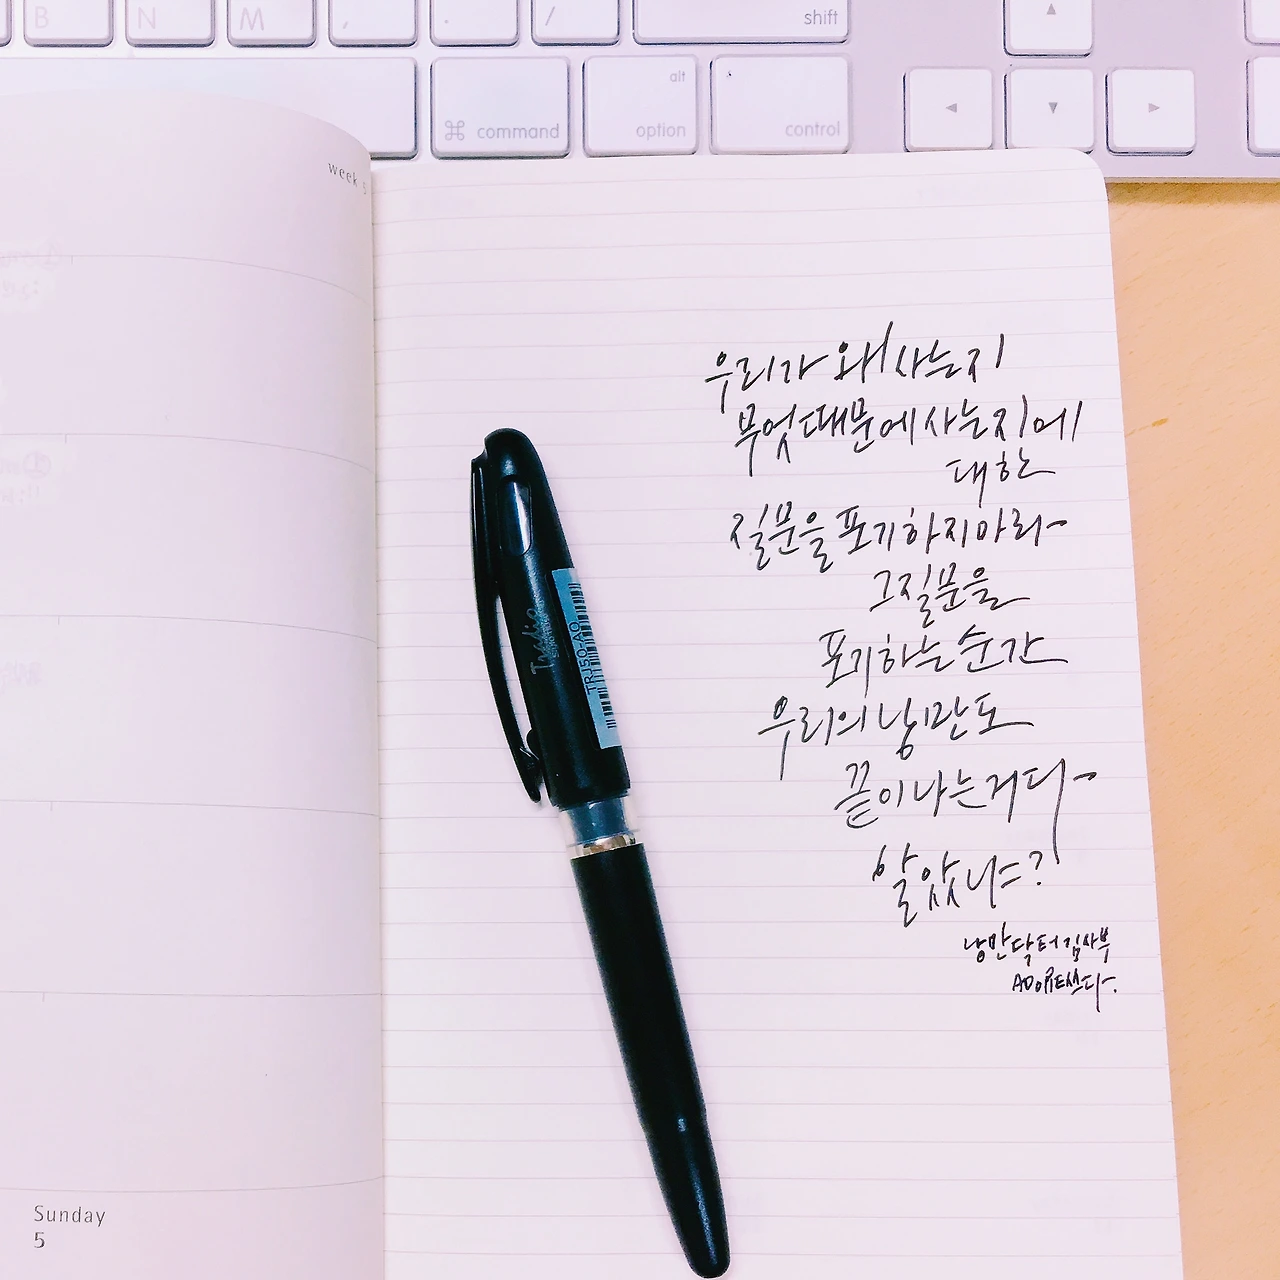 B N M , . / shift
⌘ command alt option control
week 5
우리가 왜 사는지
무엇때문에 사는지에
대한
질문을 포기하지마라
그 질문을
포기하는 순간
우리의 낭만도
끝이나는거다
알았냐?
낭만닥터 김사부
쓰다.
Tradio
TRJ50-AO
Sunday
5